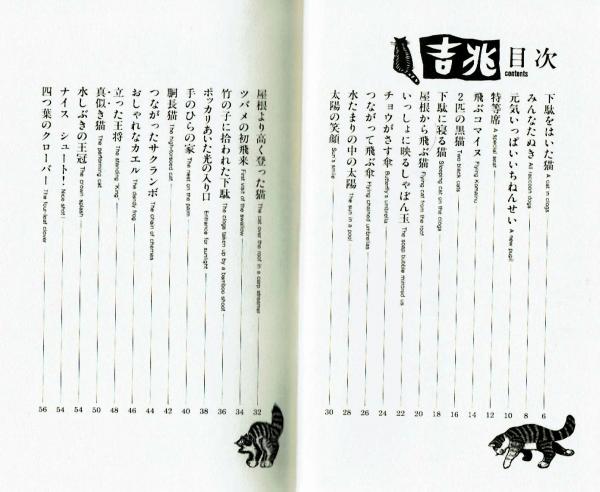 吉兆 目次
contents
下駄をはいた猫 A cat in clogs 6
みんなたぬき All raccoon dogs 8
元気いっぱいいちねんせい A new pupil 10
特等席 A special seat 12
飛ぶコマイヌ Flying Komainu 14
2匹の黒猫 Two black cats 16
下駄に寝る猫 Sleeping cat on the clogs 18
屋根から飛ぶ猫 Flying cat from the roof 20
いっしょに映るしゃぼん玉 The soap bubble mirrored us 22
チョウがさす傘 Butterfly's umbrella 24
つながって飛ぶ傘 Flying chained umbrellas 26
水たまりの中の太陽 The sun in a pool 28
太陽の笑顔 Sun's smile 30
屋根より高く登った猫 The cat over the roof in a carp streamer 32
ツバメの初飛来 First visit of the swallow 34
竹の子に拾われた下駄 The clogs taken up by a bamboo shoot 36
ポッカリあいた光の入り口 Entrance for sunlight 38
手のひらの家 The nest on the palm 40
胴長猫 The long-bodied cat 42
つながったサクランボ The chain of cherries 44
おしゃれなカエル The dandy frog 46
立った王将 The standing "King" 48
真似き猫 The performing cat 50
水しぶきの王冠 The crown splash 54
ナイス シュート! Nice shot! 54
四つ葉のクローバー The four-leaf clover 56